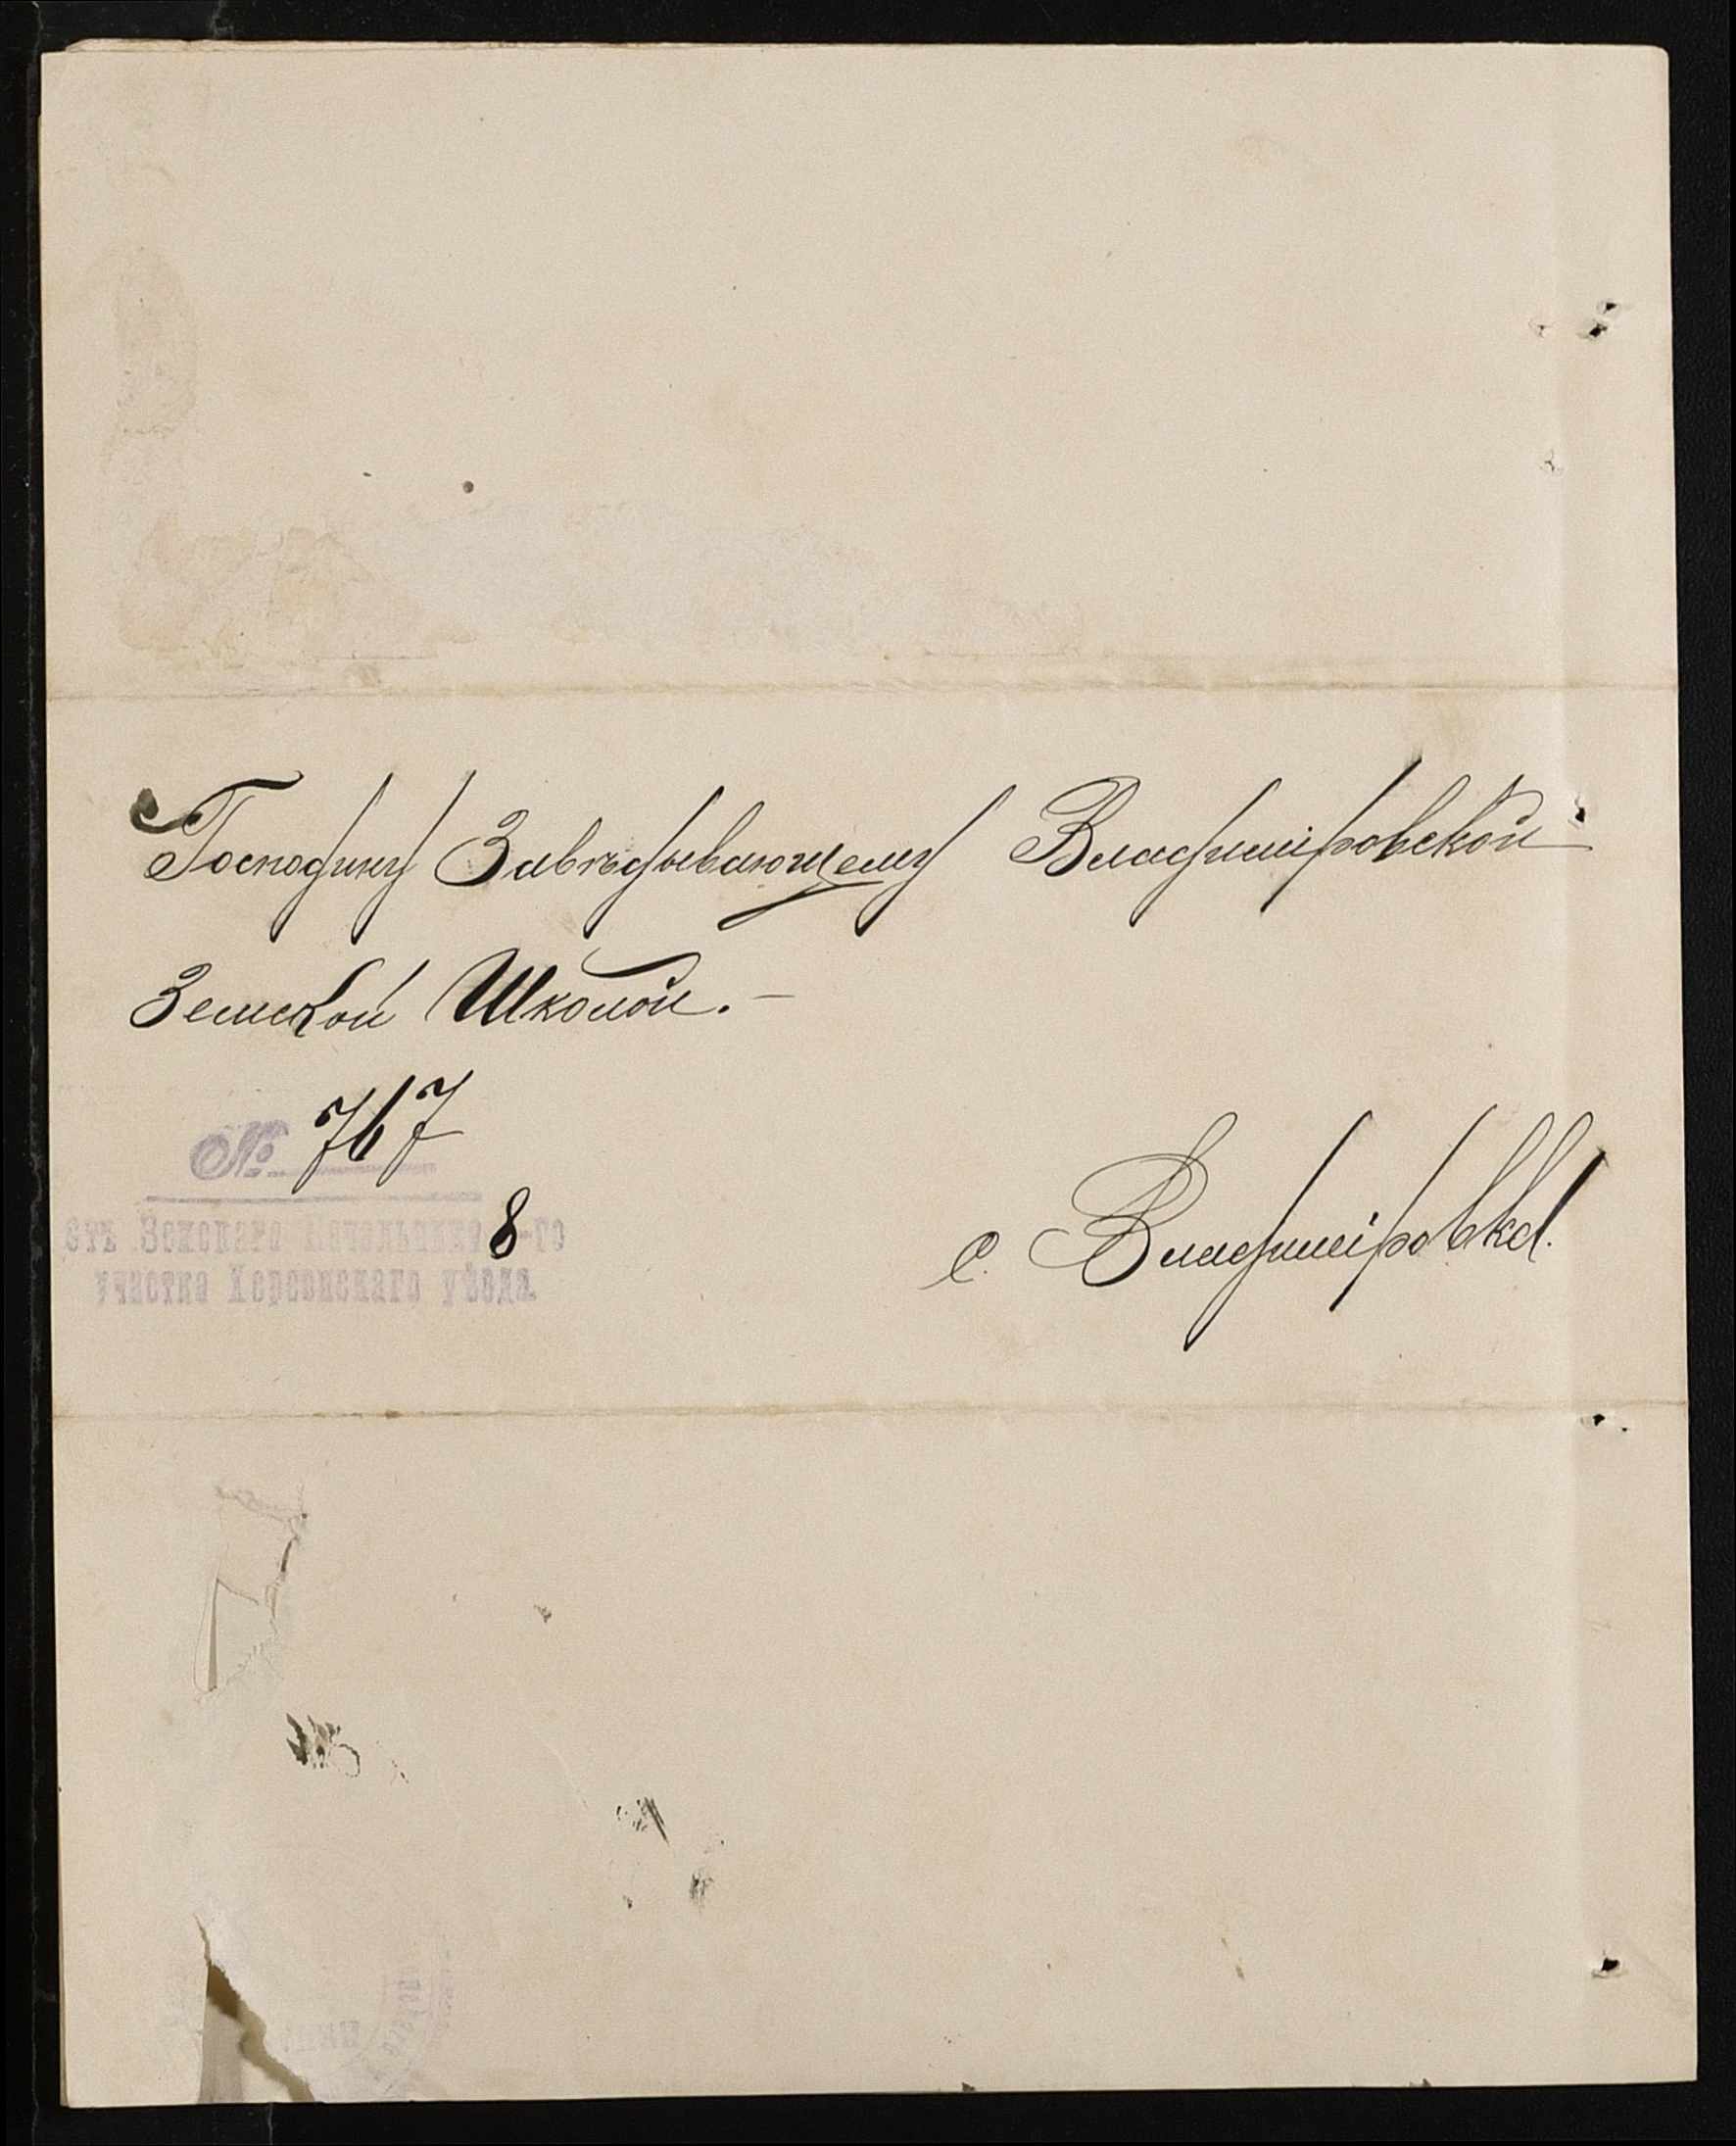 Господину Завѣдывающему Владимiровской
Земской Школой.—
№ 767
отъ Земскаго Начальника 8-го
участка Херсонскаго уѣзда.
с. Владимiровка.